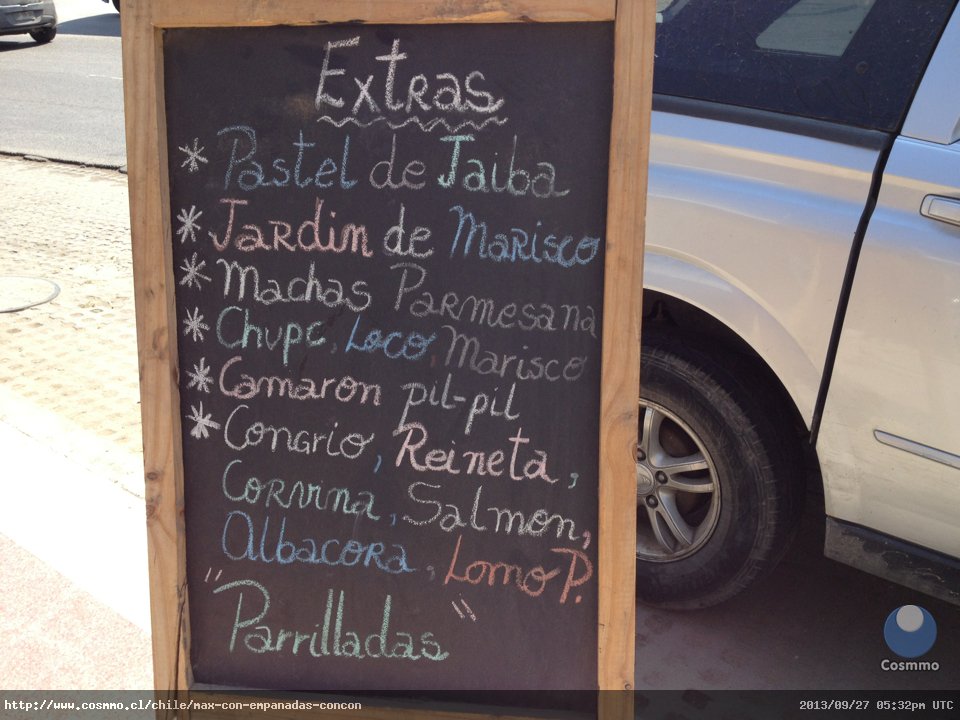 Extras
* Pastel de Jaiba
* Jardin de Marisco
* Machas Parmesana
* Chupe, Loco, Marisco
* Camaron pil-pil
* Congrio, Reineta,
Corvina, Salmon,
Albacora, Lomo P.
"Parrilladas"
Cosmmo
http://www.cosmmo.cl/chile/max-con-empanadas-concon
2013/09/27 05:32pm UTC